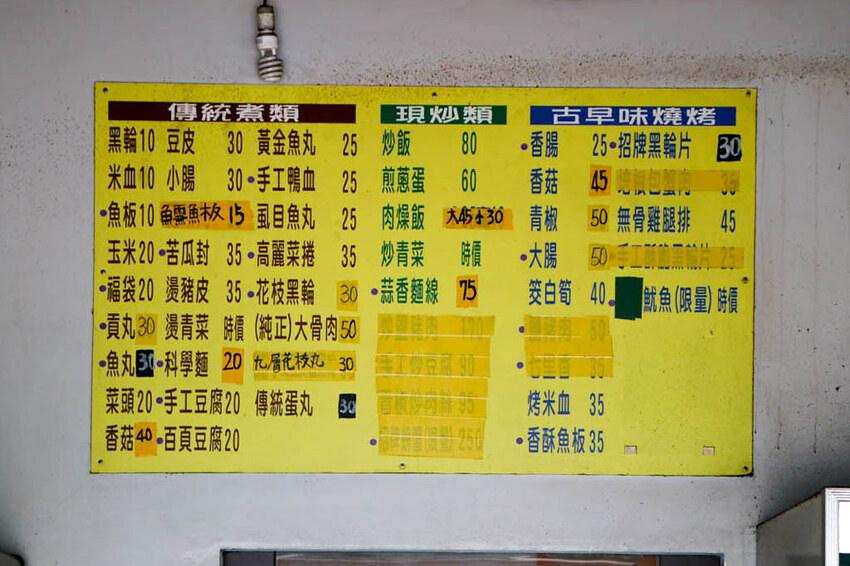 傳統煮類
黑輪10 豆皮 30 黃金魚丸 25
米血10 小腸 30 •手工鴨血 25
•魚板10 魚雲魚板 15 虱目魚丸 25
玉米20 •苦瓜封 35 •高麗菜捲 35
•福袋20 燙豬皮 35 •花枝黑輪 30
•貢丸30 燙青菜 時價 (純正)大骨肉50
•魚丸30 •科學麵 20 九層花枝丸 30
菜頭20 •手工豆腐20 傳統蛋丸 30
香菇40 •百頁豆腐20
現炒類
炒飯 80
煎蔥蛋 60
肉燥飯 大45小30
炒青菜 時價
•蒜香麵線 75
鹽豬肉 170
手工炒豆腐 90
青椒炒肉絲 95
(限量) 250
古早味燒烤
•香腸 25 •招牌黑輪片 30
香菇 45 培根包蟹肉 35
青椒 50 無骨雞腿排 45
•大腸 50 •手工酥脆黑輪片 25
筊白筍 40 •魷魚(限量)時價
•鹽豬肉 50
•七里香 35
烤米血 35
•香酥魚板 35